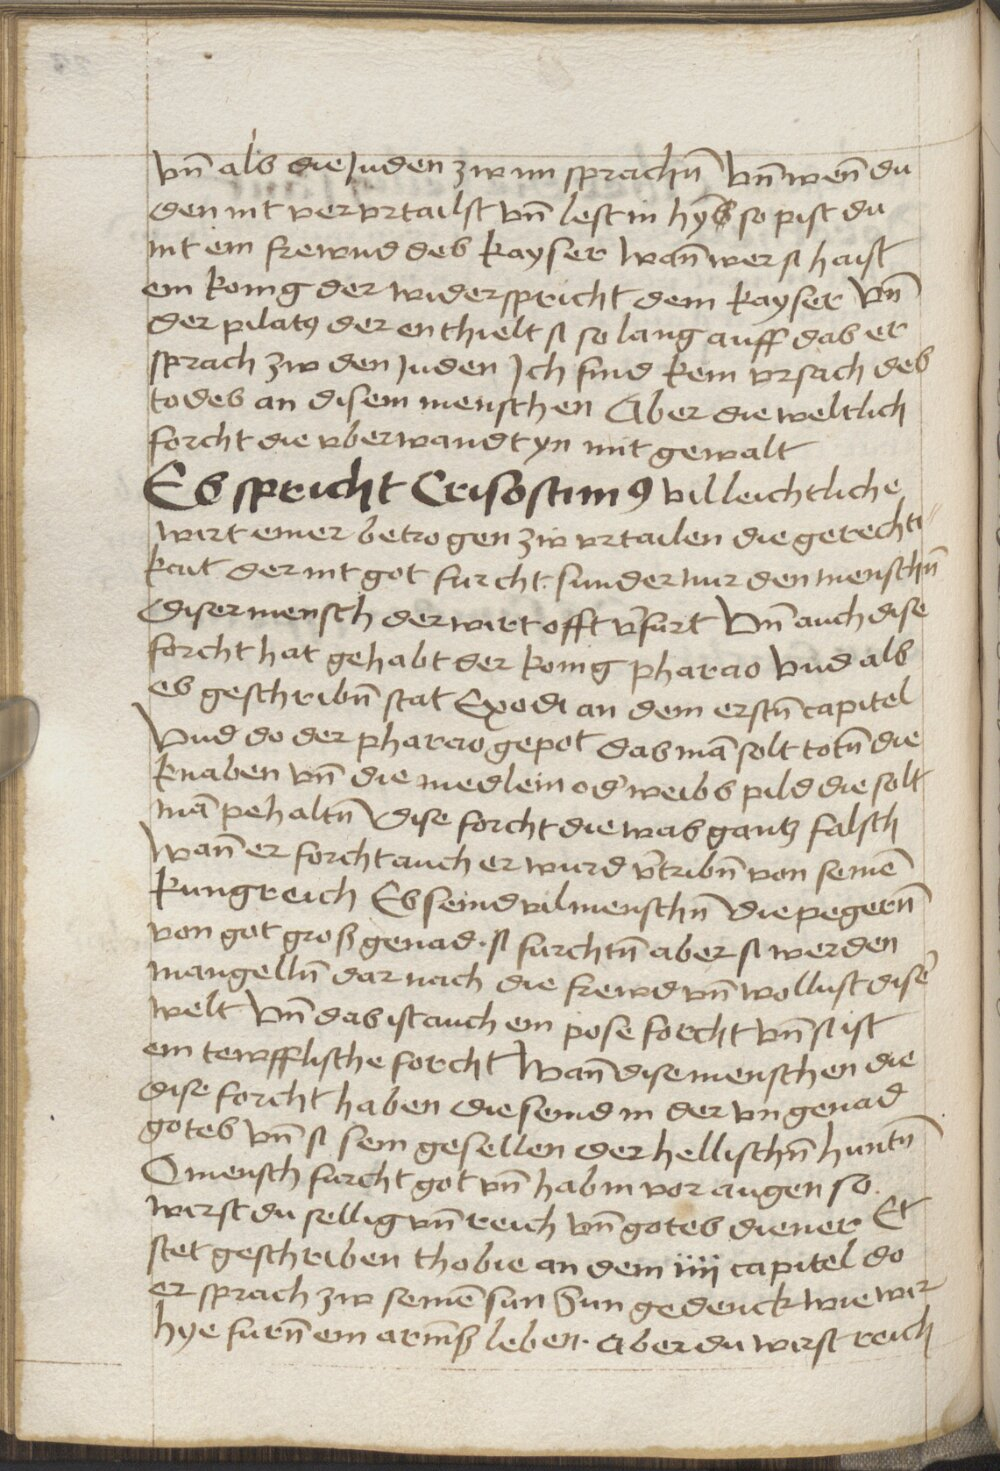 vn̄ als die Juden zw im sprachn̄ vn̄ wen̄ du
den nit vervrtailst vn̄ lest in hyn so pist du
nit ein frewnd des kayser wan̄ wer si haist
ein konig der widerspricht dem kayser vn̄
der pilatꝰ der enthielt si so lang auff das er
sprach zw den Juden Ich find kein vrsach des
todes an disem menschen Aber die weltlich
forcht die vberwandt yn mit gewalt
Es spricht Crisostimꝰ villeichtliche
wirt einer betrogen zw vrtailen die gerechti=
kait der nit got furcht. sunder nur den menschn̄
Diser mensch der wirt offt v̄furt vn̄ auch dise
forcht hat gehabt der konig pharao vnd als
es geschribn̄ stat Exodi an dem erstn̄ capitel
vnd do der pharao gepot das mā solt totn̄ die
knaben vn̄ die medlein od̄ weibs pild die solt
mā pehaltn̄ Dise forcht die was gantz falsch
wan̄ er forcht auch er wurd v̄tribn̄ von seinē
kungreich Es seind vil menschn̄ die pegern̄
von got groß genad. si furchtn̄ aber si werden
mangelln̄ dar nach die frewd vn̄ wollust disē
welt vn̄ das ist auch ein pose forcht vn̄ si ist
ein tewfflische forcht wan̄ dise menschen die
dise forcht haben die seind in der vngenad
gotes vn̄ si sein gesellen der hellischn̄ huntn̄
O mensch furcht got vn̄ hab in vor augen so
wirst du sellig vn̄ reich vn̄ gotes diener Et
stet geschriben thobie an dem iiij capitel do
er sprach zw seinē sun Sun gedenck wie wir
hye furn̄ ein arm̄ß leben. aber du wirst reich